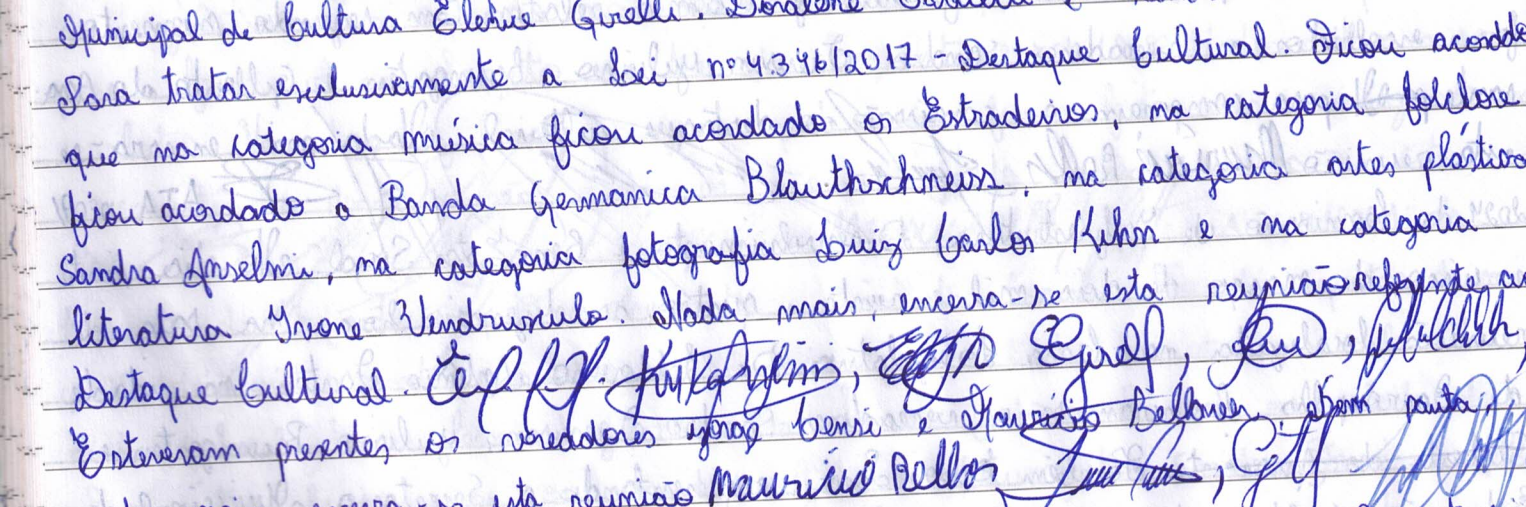 Municipal de Cultura Elenice Girelli.
Para tratar exclusivamente a Lei nº 4.346/2017 - Destaque Cultural. Ficou acordado
que na categoria música ficou acordado os Estradeiros, na categoria folclore
ficou acordado a Banda Germanica Blauthschneiss, na categoria artes plásticas
Sandra Anselmi, na categoria fotografia Luiz Carlos Kuhn e na categoria
literatura Yvone Vendruscolo. Nada mais, encerra-se esta reunião referente ao
Destaque Cultural.
Estiveram presentes os vereadores Censi e Mauricio pauta
esta reunião Mauricio Bellos